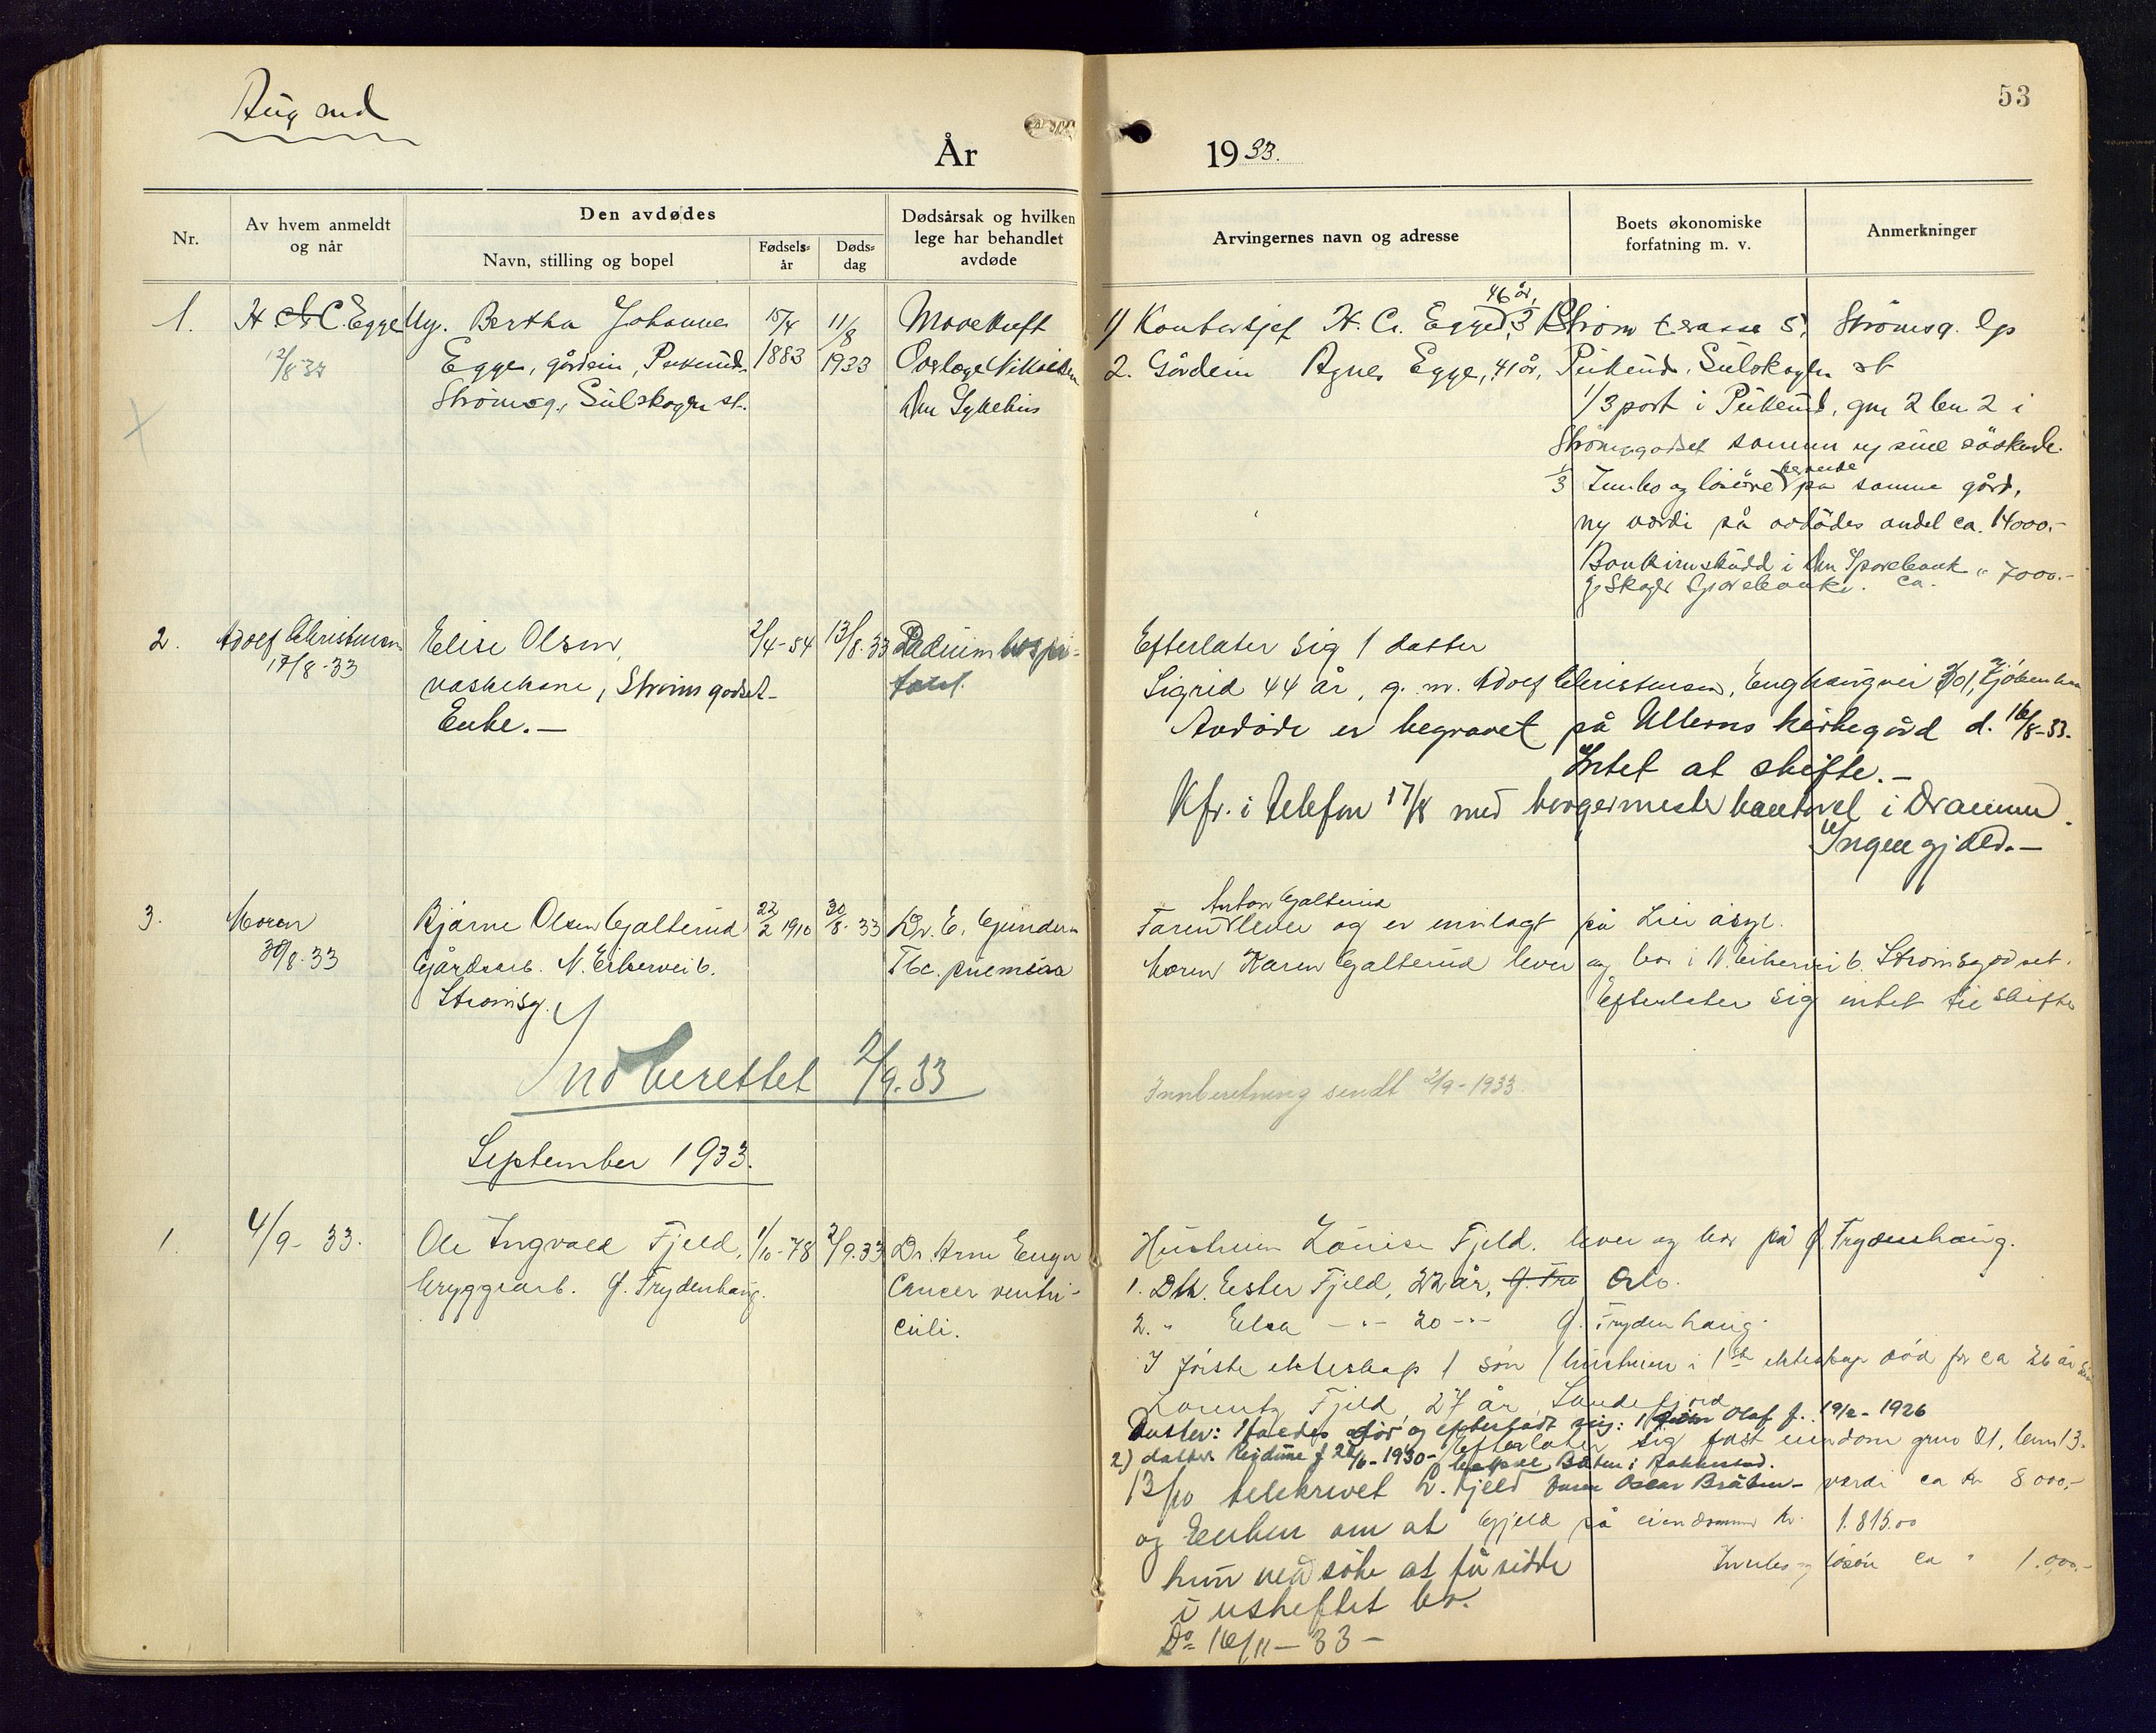 Aug md
53
År 1933.
Nr.
Av hvem anmeldt og når
Den avdødes
Navn, stilling og bopel
Fødselsår
Dødsdag
Dødsårsak og hvilken lege har behandlet avdøde
Arvingernes navn og adresse
Boets økonomiske forfatning m. v.
Anmerkninger
1. H. C. Egge Ug. Bertha Johanne 15/4 11/8 Mavekreft
12/8 33 Egge, gårdein, Pukerud, 1883 1933 Overlæge Nikolaisen
Strømsg., Gulskogen st. Dn Sykehus
1) Kontorsjef H. C. Egge, 46 år, Strøm terasse 5, Strømsg. lp
2. Gårdein Agnes Egge, 41 år, Pukerud, Gulskogen st
1/3 part i Pukerud, gnr 2 bnr 2 i
Strømsgodset sammen m sine søskende.
1/3 Innbo og løsøre beroende på samme gård,
ny værdi på avdødes andel ca. 14000.-
Bankinnskudd i Dn Sparebank " 7000.-
og Skoger Sparebank. ca.
2. Adolf Christensen Elise Olsen, 2/4-54 13/8-33 Radiumhospi-
17/8-33 vaskekone, Strømsgodset tal.
Enke.-
Efterlater sig 1 datter
Sigrid 44 år, g. m. Adolf Christensen, Enghaugvei 301, Kjøbenhavn
Avdøde er begravet på Ullerns kirkegård d. 16/8-33.
Intet at skifte.-
Kfr. i telefon 17/8 med borgermesterkontoret i Drammen.
Ingen gjæld.-
3. Moren Bjarne Olsen Galterud 22/2 1910 30/8-33 Dr. E. Gundersen
30/8-33 Gårdsarb. N. Eikervei 6. Tbc. pulmonum
Strømsg.
Anton Galterud
Faren lever og er innlagt på Lier asyl.
Moren Karen Galterud lever og bor i N. Eikervei 6. Strømsgodset.
Efterlater sig intet til skifte
Indberettet 2/9.33
Innberetning sendt 2/9-1933.
September 1933.
1. 4/9-33. Ole Ingvald Fjeld, 1/10-78 2/9.33 Dr. Arne Enger
bryggearb. Ø. Frydenhaug. Cancer ventri-
culi.
Hustruen Louise Fjeld. lever og bor på Ø. Frydenhaug.
1. Dtr. Ester Fjeld, 22 år, Ø. Fry Oslo.
2. " Elsa -"- 20 -"- Ø. Frydenhaug.
I første ekteskap 1 søn (hustruen i 1ste ekteskap død for ca 26 år siden
Lorentz Fjeld 27 år Sandefjord
Datter: død og efterladt sig: 1 søn Olaf f. 19/2-1926
2) datter f 1930-
Efterlater sig fast eiendom grno 21, brno 13.
13/10 tilskrevet L. Fjeld Oscar Bråten- værdi ca kr 8000,-
og Enken om at Gjeld på eiendommen kr. 1.815.00
hun må søke at få sidde Innbo og løsøre ca " 1.000,-
i uskiftet bo.
Do 16/11-33-